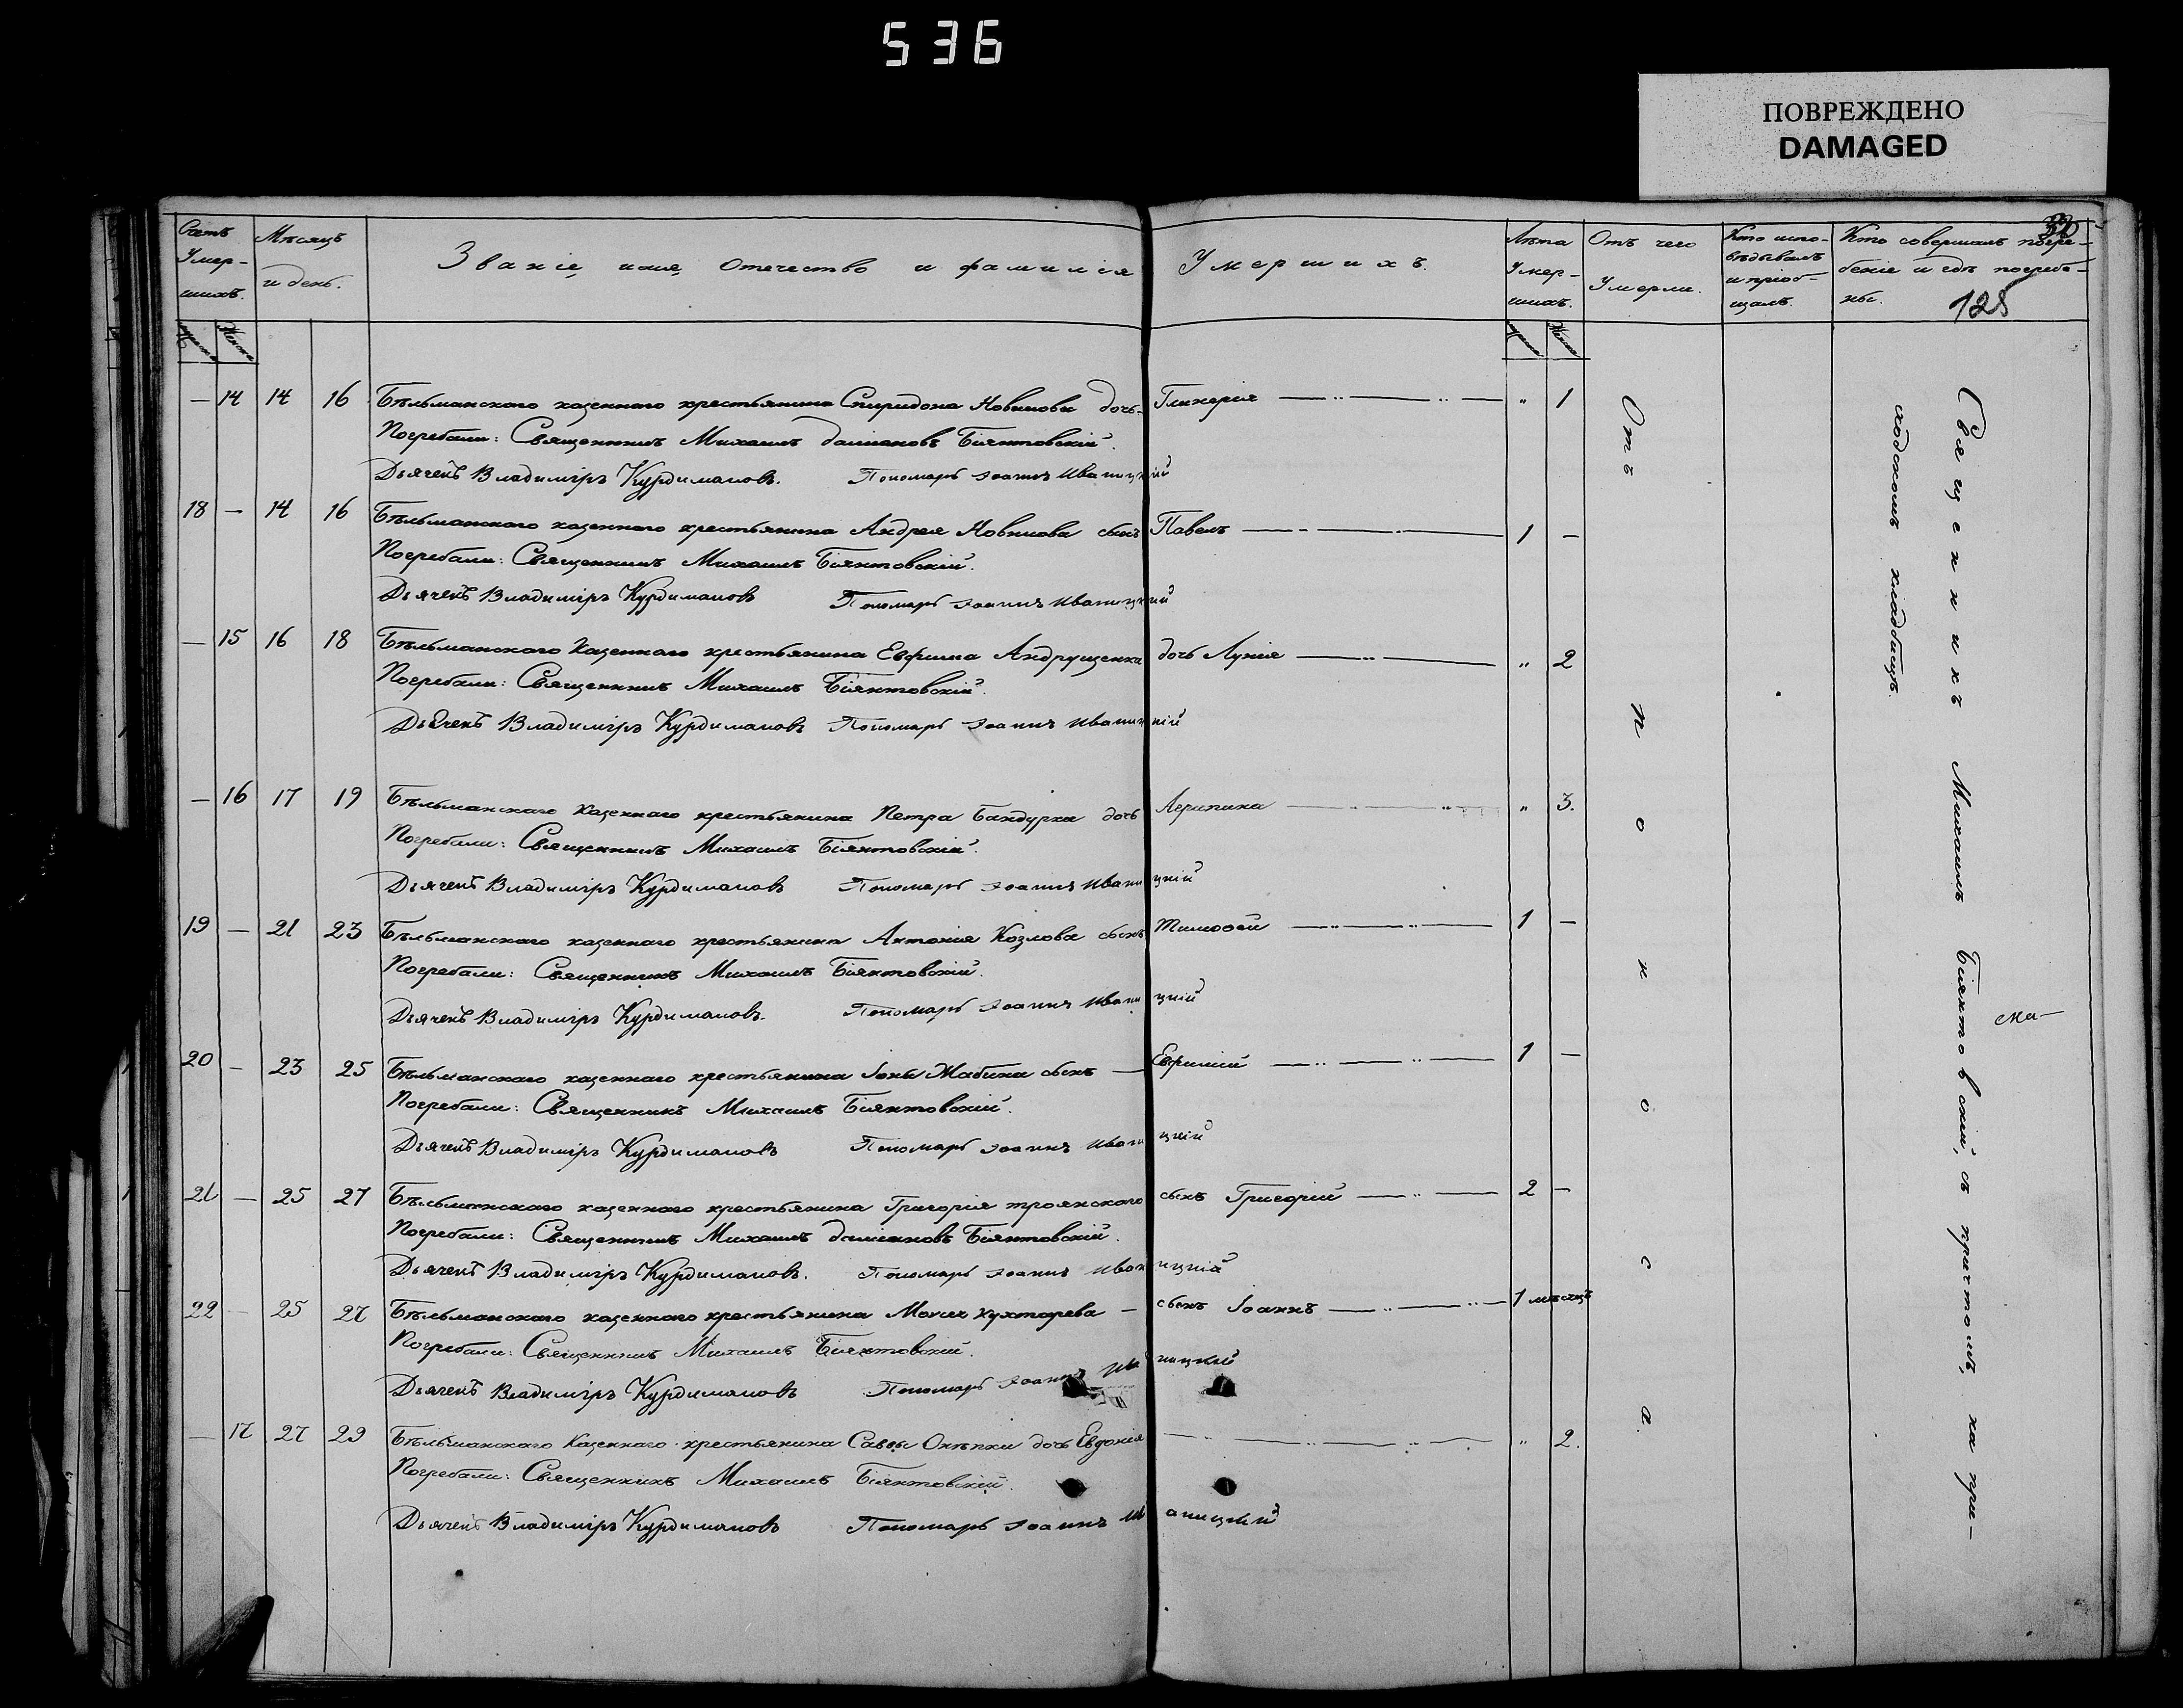 536
ПОВРЕЖДЕНО
DAMAGED
32
Счетъ Умер-шихъ.
Мѣсяцъ и день.
Званіе, имя, отечество и фамилія Умершихъ.
Лѣта Умер-шихъ.
Отъ чего Умерли.
Кто испо-вѣдывалъ и пріоб-щалъ.
Кто совершалъ погре-беніе и гдѣ погребе-ны.
125
— 14 14 16 Бѣльманского казенного крестьянина Спиридона Новикова дочь Гликерія " 1
Погребали: Священникъ Михаилъ Даміановъ Біянтовскій.
Дьячекъ Владиміръ Курдимановъ. Пономарь Іоаннъ Иваницкій
18 — 14 16 Бѣльманского казенного крестьянина Андрея Новикова сынъ Павелъ 1 —
Погребали: Священникъ Михаилъ Біянтовскій.
Дьячекъ Владиміръ Курдимановъ Пономарь Іоаннъ Иваницкій
— 15 16 18 Бѣльманского Казенного крестьянина Евфима Андрущенка дочь Лукія " 2
Погребали: Священникъ Михаилъ Біянтовскій.
Дьячекъ Владиміръ Курдимановъ Пономарь Іоаннъ Иваницкій
— 16 17 19 Бѣльманскаго Казеннаго крестьянина Петра Бандурка дочь Агрипина " 3.
Погребали: Священникъ Михаилъ Біянтовскій.
Дьячекъ Владиміръ Курдимановъ Пономарь Іоаннъ Иваницкій
19 — 21 23 Бѣльманского казенного крестьянина Антонія Козлова сынъ Тимофей 1 —
Погребали: Священникъ Михаилъ Біянтовскій.
Дьячекъ Владиміръ Курдимановъ. Пономарь Іоаннъ Иваницкій
20 — 23 25 Бѣльманского казенного крестьянина Іоны Мабина сынъ — Евфимій 1 —
Погребали: Священникъ Михаилъ Біянтовскій.
Дьячекъ Владиміръ Курдимановъ Пономарь Іоаннъ Иваницкій
21 — 25 27 Бѣльманского казенного крестьянина Григорія Троянского сынъ Григорій 2 —
Погребали: Священникъ Михаилъ Даміановъ Біянтовскій.
Дьячекъ Владиміръ Курдимановъ. Пономарь Іоаннъ Иваницкій
22 — 25 27 Бѣльманского казенного крестьянина Кухтарева — сынъ Іоаннъ 1 мѣсяцъ
Погребали: Священникъ Михаилъ Біянтовскій.
Дьячекъ Владиміръ Курдимановъ Пономарь Іоаннъ Иваницкій
— 17 27 29 Бѣльманского Казенного крестьянина Саввы дочь Евдокія " 2.
Погребали: Священникъ Михаилъ Біянтовскій.
Дьячекъ Владиміръ Курдимановъ Пономарь Іоаннъ Иваницкій
Отъ поноса.
Священникъ Михаилъ Біянтовскій, съ причтомъ, на при-
ходскомъ кладбищѣ.